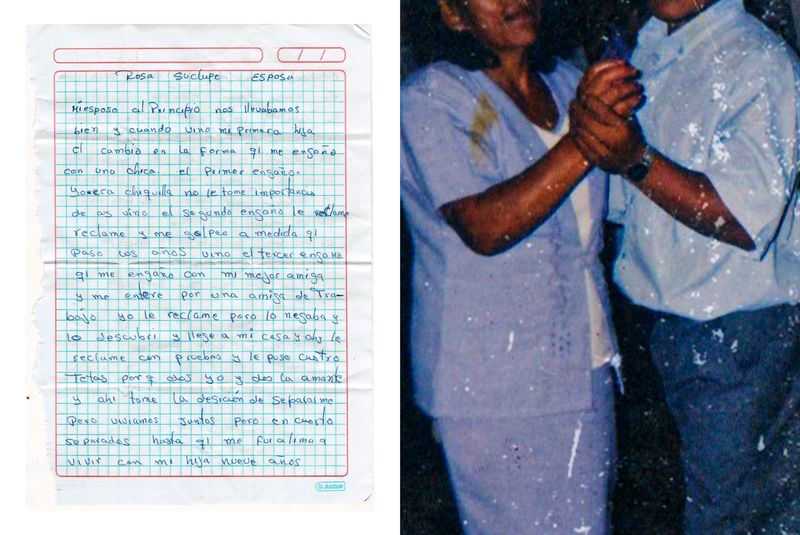 Rosa Suclupe ESPOSA
Miesposo al Principio nos llevabamos
bien y cuando vino mi primera hija
el cambio en la forma qi me engaño
con una chica. el Primer engaño.
yo era chiquilla no le tome importancia
de ay vino el segundo engano le reclame
reclame y me golpeo a medida qi
Paso los años vino el tercer engano
qi me engano con mi mejor amiga
y me entere por una amiga de Tra-
bajo yo le reclame pero lo negaba y
lo descubri y llego a mi casa y ahy le
reclame con pruebas y le puse cuatro
Tetas porq dos yo y dos la amante
y ahi tome la desición de separarme
Pero viviamos juntos pero en cuarto
separados hasta qi me fui a lima a
vivir con mi hija nueve años
Justus